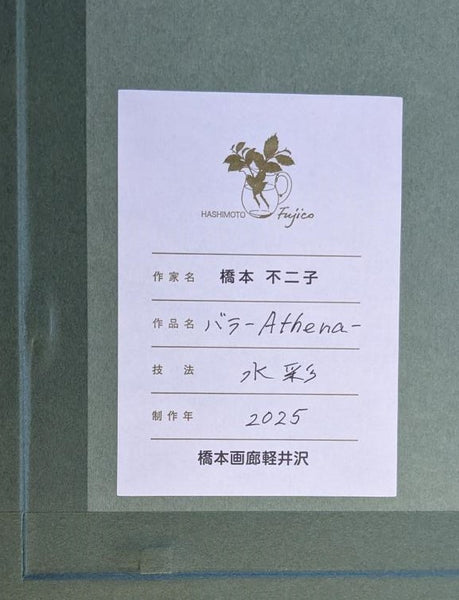 HASHIMOTO Fujico
作家名 橋本 不二子
作品名 バラ-Athena-
技 法 水彩
制作年 2025
橋本画廊軽井沢